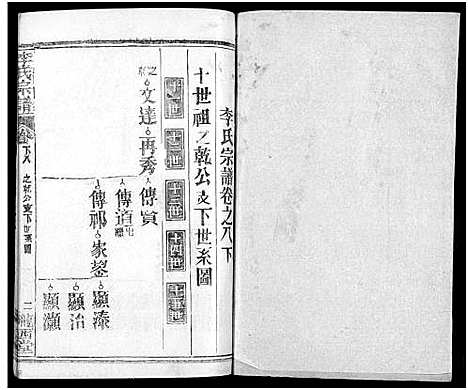 李氏宗譜卷之八下
十世祖之乾公支下世系圖
十一世
十二世
十三世
十四世
十五世
文達
再秀
傳賓
傳道
傳祁
家鋆
顯溱
顯治
顯灝
李氏宗譜
卷八下
之乾公支下世系圖
一
隴西堂